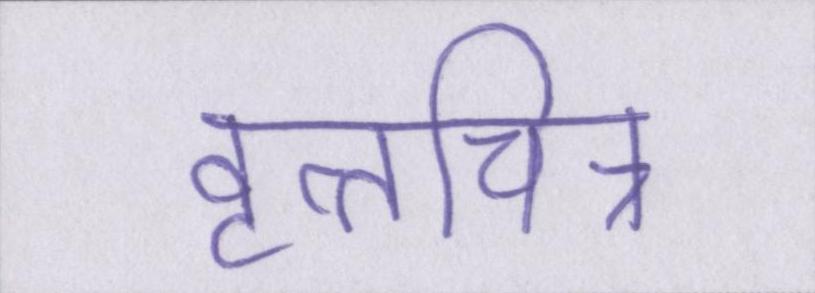 वृत्तचित्र